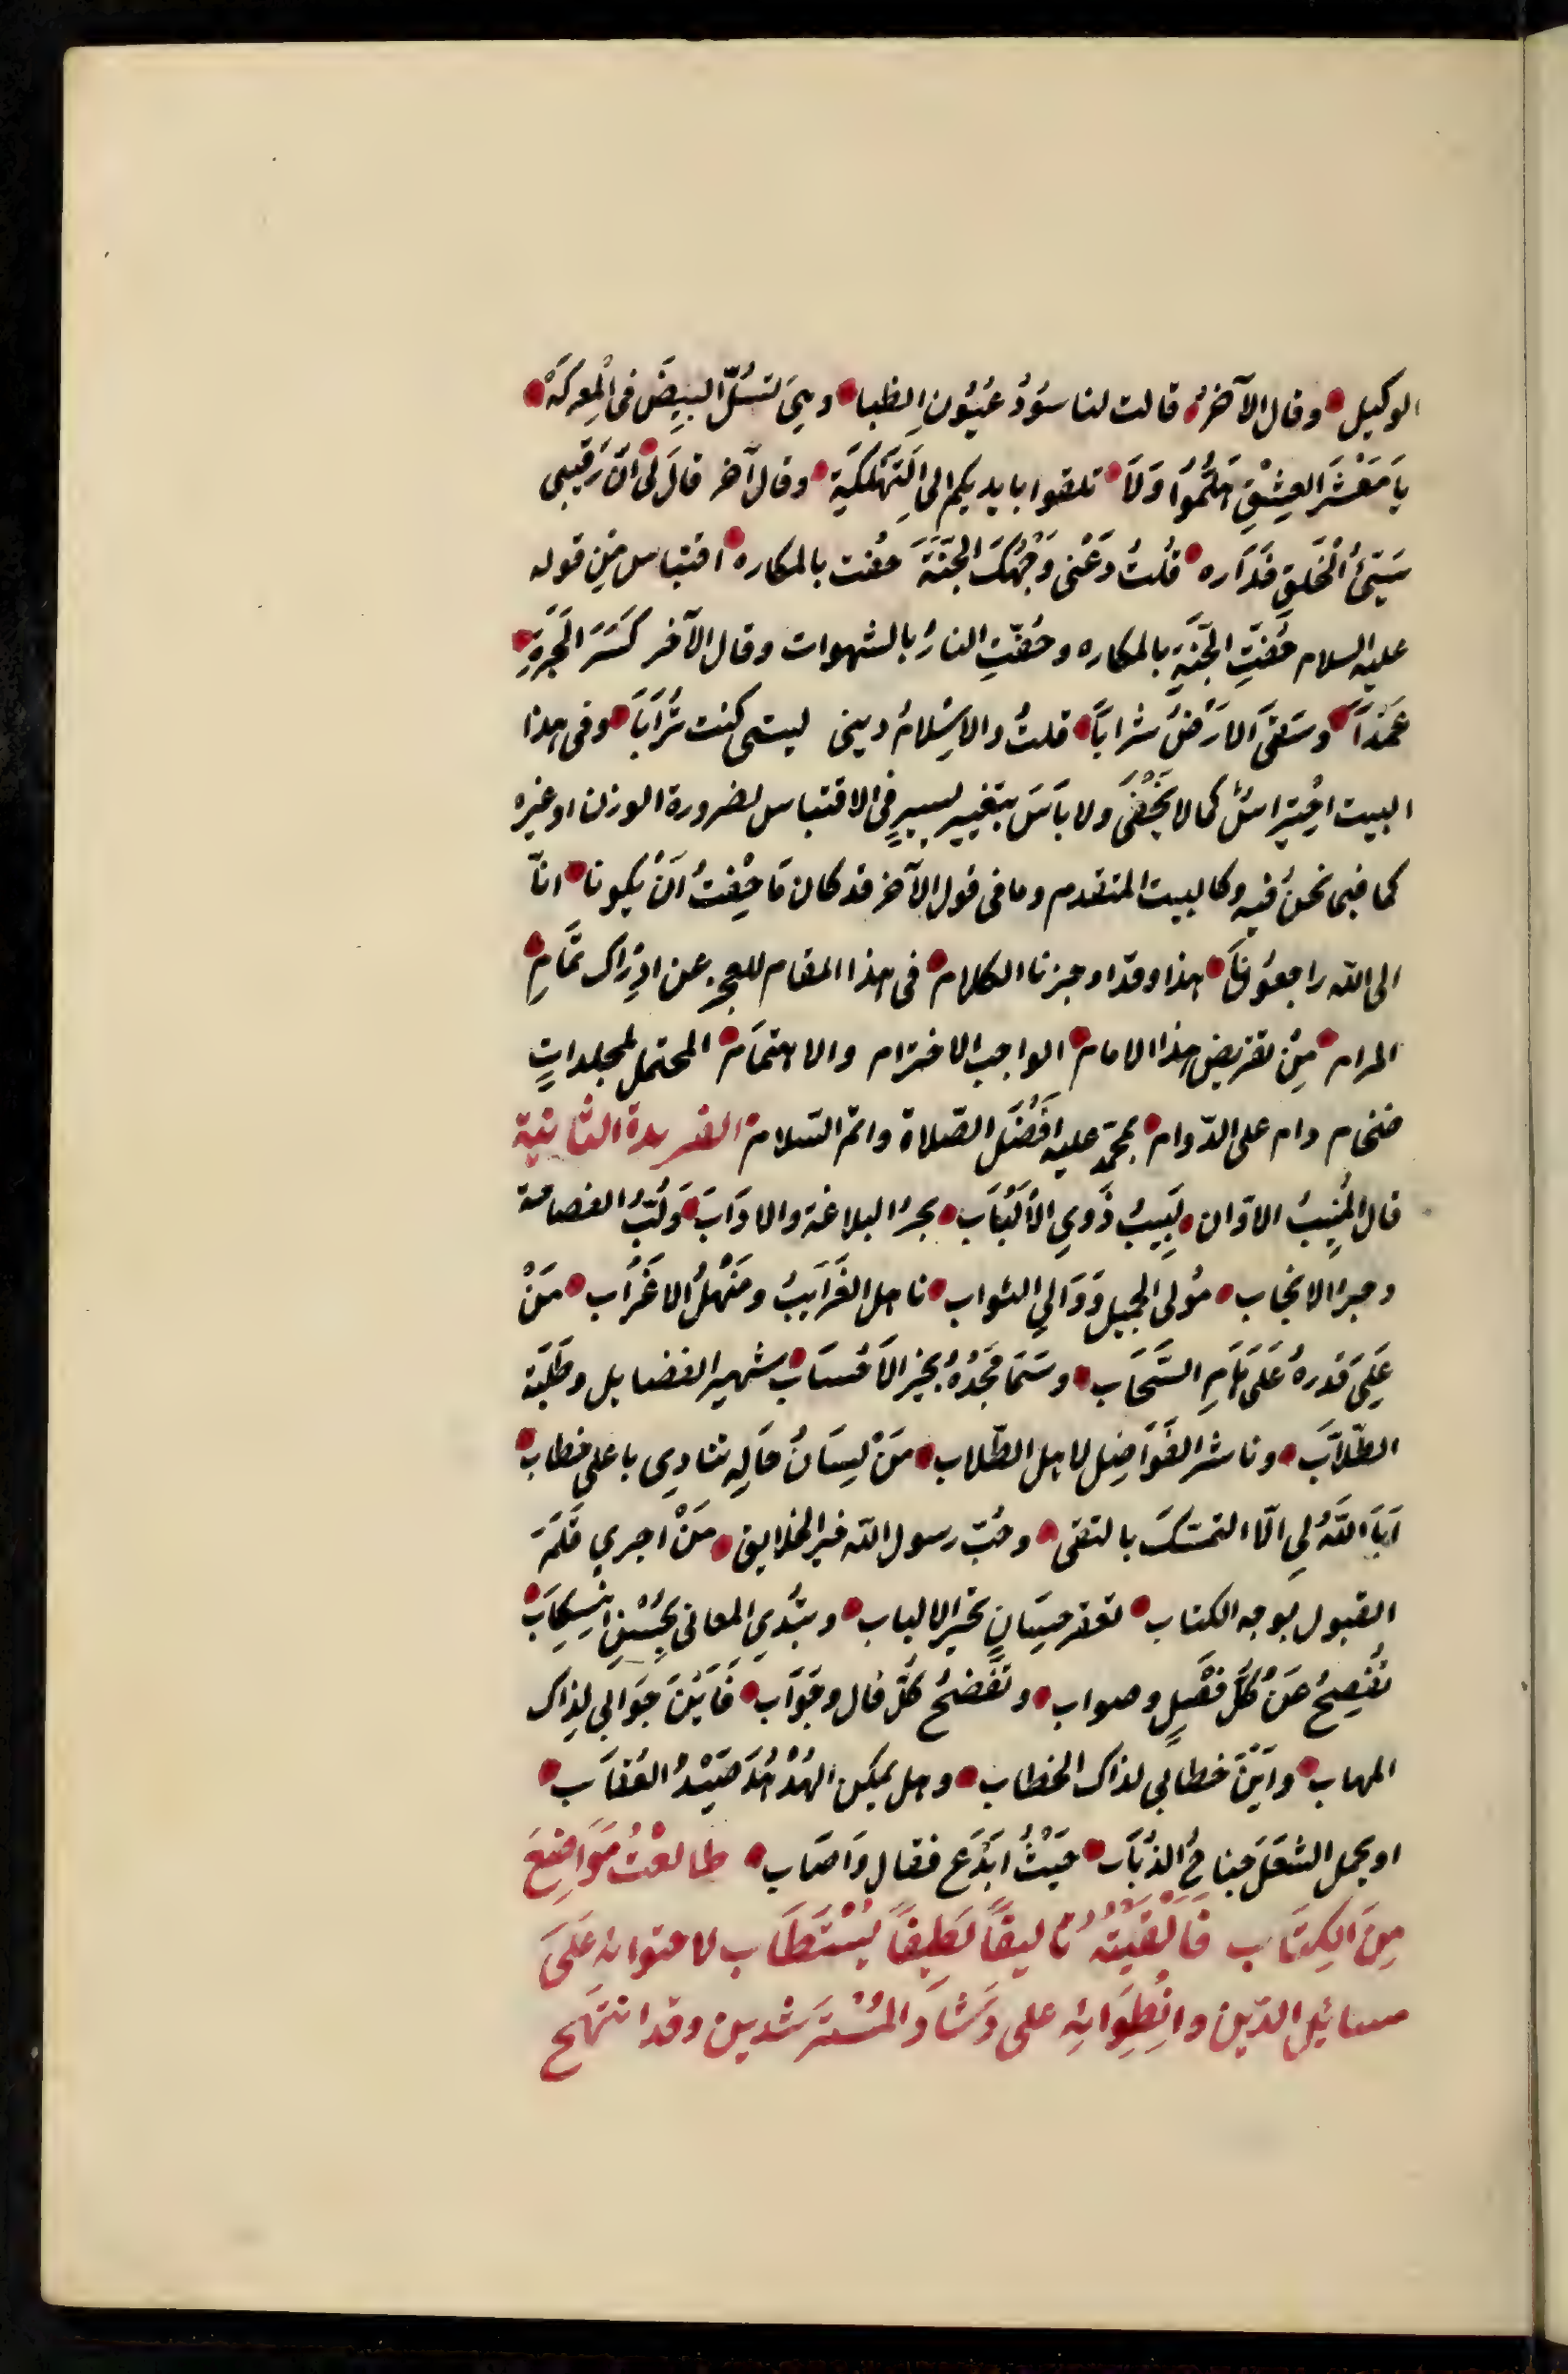 الوكيل • وقال الآخرُ • قالت لنا سُوْدُ عُيُوْنِ الظبا • وهيَ تَسُلُّ البِيضَ في المعركَةْ •
يَا مَعْشَرَ العِشْقِ هَلُمُّوا وَلَا • تلقوا بايديكم الى التَهْلُكَةِ • وقال آخر قالَ لى • انَّ رَقيبى
سَيّئُ الْخَلقِ فَدَاره • قُلتُ دَعْنى وَجْهُكَ الجنَّةَ حُفت بالمكاره • اقتباس مِن قوله
عليه السلام حُفّتِ الجَنَّةِ بالمكاره وحُفّتِ النارُ بالشهوات وقال الآخر كَسَرَ الجَرَةِ •
عَمْدَاً • وسَقىَ الارَضْ شراباً • قلتُ والاسِلامُ دينى ليتنى كنت تُرَاباً • وفى هذا
البيت احْتِراسٌ كما لا يَخْفَى وَلا بَأسَ بتغيير يسيرٍ فى الاقتباس لضرورة الوزن او غيره
كما فيمَا نحنُ فيه وكالبيت المتقدم وما فى قول الآخر قد كان مَا خِفْتُ اَنْ يكونا • انّا
الى الله راجعُونَا • هذا وقد اوجزنا الكلام • فى هذا المقام للعجز عن ادِرَاك تَمَامِ •
المرام • مِنْ تقريض هذا الامام • الواجب الاحترام والاهتمَام • المحتمل لمجلداتٍ
ضخام دام على الدّوام • بمحمّدٍ عليه اَفْضَلَ الصّلاة واتم السّلام • الفريدة الثانية
قال المُنِيْبُ الاوّاب • لَبِيبُ ذَوي الأَلْبَابِ • بحرُ البلاغة والادَابَ • وَلُبُّ الفصاحة
وحبر الانجاب • مُولى الجميل وَوَالي الثواب • ناهل الغَرَايبُ ومَنْهلُ الاغَرَاب • مَنْ
عَلَى قدرهُ عَلَى هَامِ السَّحَابِ • وسَمَا مَجْدُهُ بخير الاَحْسَاب • شهير الفضايل وطَلَبة
الطّلاَّبَ • وناشر الفَوَاضِل لاهل الطّلاب • مَنْ لِسَانُ حَالِهِ تنادي باعلى خطاب •
اَبَا اللهُ لي الّا التمسّكَ بالتقى • وحُبّ رسول الله خير الخلايق • مَنْ اجرى قَلَمَ
القبول بوجه الكتاب • حِسَانٍ تخير الالباب • وتُبْدِى المعانى بحُسْنِ انسِكَابَ •
تُفْصِحُ عَنْ كُلّ فَصْلٍ وصواب • وتَفضحُ كلّ قال وجَوَاب • فَاَيْنَ جَوَابي لِذاك
المهاب • وَاَيْنَ خطابي لذاك الخطاب • وهل يمكن الهُدْهُدَ صَيْدُ العُقَاب •
او يحمل الثقلَ جناحُ الذُبَاب • حَيْثُ اَبْدَع فقال وَاصَاب • طالعْتُ مَوَاضِعَ
مِنَ الكِتَاب فَاَلْفَيْتُهُ تاليفاً لَطِيفاً يُسْتَطَاب لاحتوائهِ عَلىَ
مسائِل الدّين وانِطِوَائهِ على رَشَاد المُسْترَشدين وقد انتَهَج